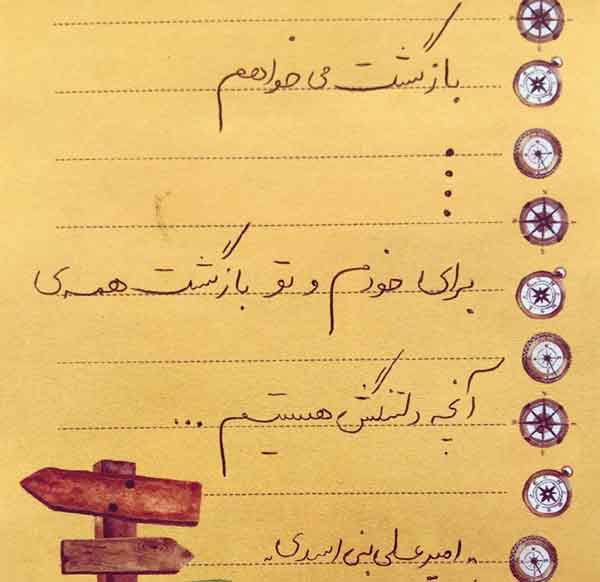 بازگشت می خواهم
....
برای خودم و تو بازگشت همه ی
آنچه دلتنگش هستیم ...
"امیرعلی بنی اسدی"